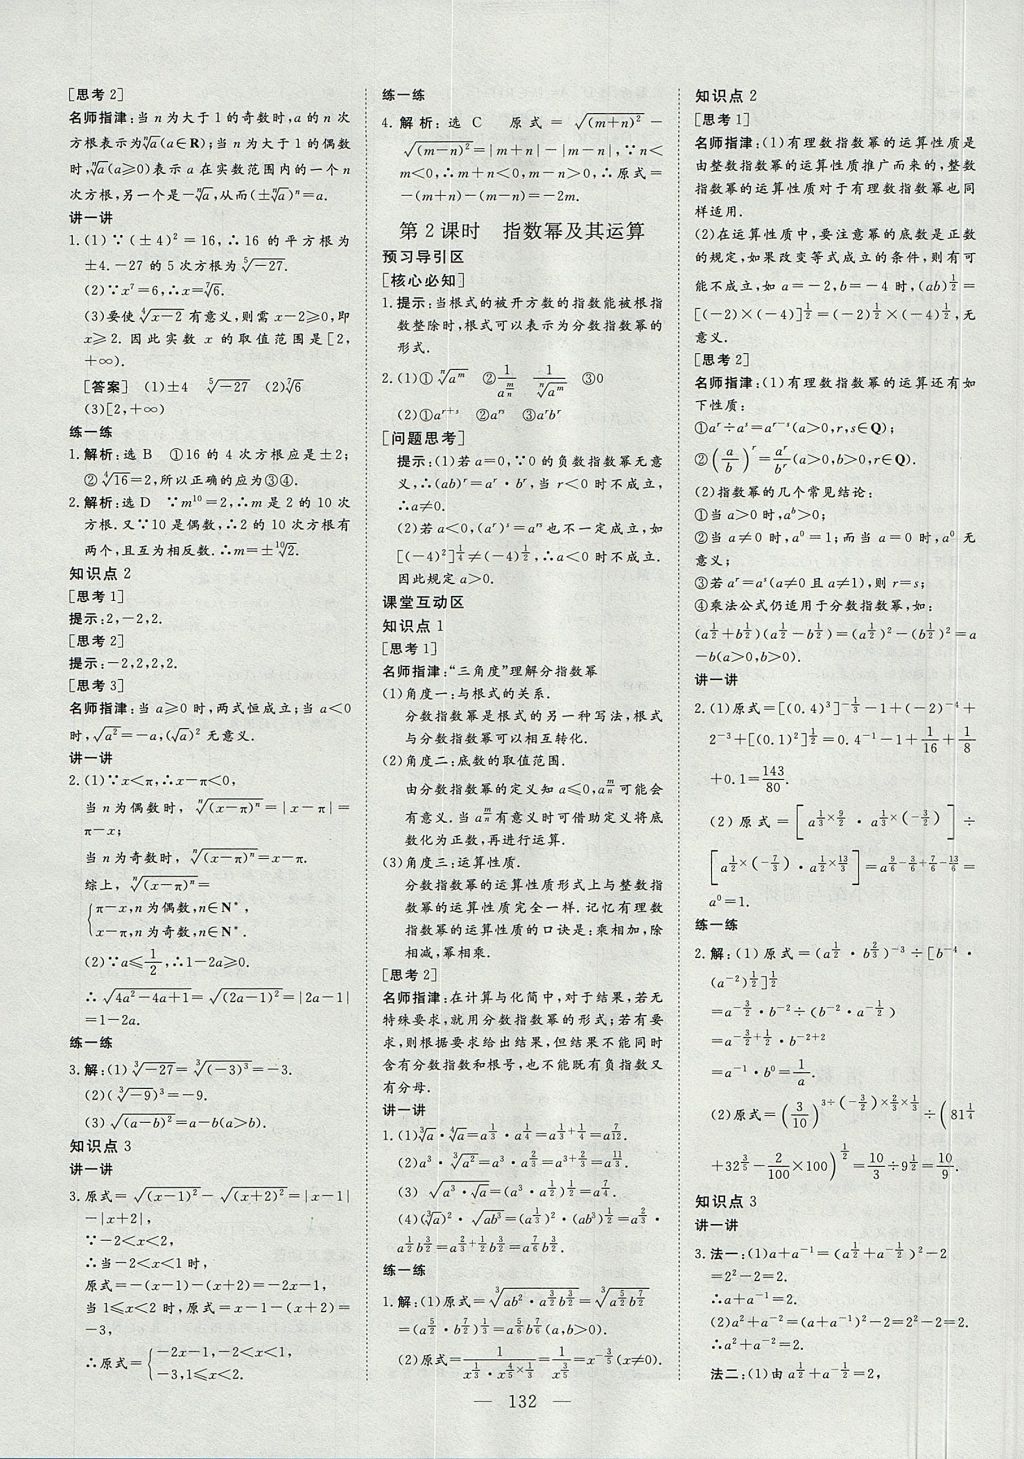 [思考2]
名师指津:当 n 为大于 1 的奇数时,a 的 n 次
方根表示为ⁿ√a(a∈R);当 n 为大于 1 的偶数
时,ⁿ√a(a≥0)表示 a 在实数范围内的一个 n
次方根,另一个是-ⁿ√a,从而(±ⁿ√a)ⁿ=a.
讲一讲
1.(1)∵(±4)²=16,∴16 的平方根为
±4.-27 的 5 次方根为⁵√-27.
(2)∵x⁷=6,∴x=⁷√6.
(3)要使⁴√(x-2)有意义,则需 x-2≥0,即
x≥2. 因此实数 x 的取值范围是[2,
+∞).
[答案] (1)±4 ⁵√-27 (2)⁷√6
(3)[2,+∞)
练一练
1.解析:选 B ①16 的 4 次方根应是±2;
②⁴√16=2,所以正确的应为③④.
2.解析:选 D ∵m¹⁰=2,∴m 是 2 的 10 次
方根.又∵10 是偶数,∴2 的 10 次方根有
两个,且互为相反数.∴m=±¹⁰√2.
知识点 2
[思考1]
提示:2,-2,2.
[思考2]
提示:-2,2,2,2.
[思考3]
名师指津:当 a≥0 时,两式恒成立;当 a<0
时,√a²=-a,(√a)²无意义.
讲一讲
2.(1)∵x<π,∴x-π<0,
当 n 为偶数时,ⁿ√(x-π)ⁿ=|x-π|=
π-x;
当 n 为奇数时,ⁿ√(x-π)ⁿ=x-π.
综上,ⁿ√(x-π)ⁿ=
{π-x,n 为偶数,n∈N*,
x-π,n 为奇数,n∈N*.
(2)∵a≤1/2,∴1-2a≥0.
∴√(4a²-4a+1)=√(2a-1)²=|2a-1|
=1-2a.
练一练
3.解:(1)³√-27=³√(-3)³=-3.
(2)(³√-9)³=-9.
(3)√(a-b)²=a-b(a>b).
知识点 3
讲一讲
3.原式=√(x-1)²-√(x+2)²=|x-1|
-|x+2|,
∵-2<x<2,
∴当-2<x<1 时,
原式=-(x-1)-(x+2)=-2x-1,
当 1≤x<2 时,原式=x-1-(x+2)=
-3,
∴原式={-2x-1,-2<x<1,
-3,1≤x<2.
练一练
4.解析:选 C 原式=√(m+n)²-
√(m-n)²=|m+n|-|m-n|,∵n<
m<0,∴m+n<0,m-n>0,∴原式=
-(m+n)-(m-n)=-2m.
第 2 课时 指数幂及其运算
预习导引区
[核心必知]
1.提示:当根式的被开方数的指数能被根指
数整除时,根式可以表示为分数指数幂的
形式.
2.(1)①ⁿ√aᵐ ②1/a^(m/n) 1/ⁿ√aᵐ ③0
(2)①a^(r+s) ②a^(rs) ③aʳbʳ
[问题思考]
提示:(1)若 a=0,∵0 的负数指数幂无意
义,∴(ab)ʳ=aʳ·bʳ,当 r<0 时不成立,
∴a≠0.
(2)若 a<0,(aʳ)ˢ=a^(rs)也不一定成立,如
[(-4)²]^(1/4)≠(-4)^(1/2),∴a<0 时不成立.
因此规定 a>0.
课堂互动区
知识点 1
[思考1]
名师指津:“三角度”理解分指数幂
(1)角度一:与根式的关系.
分数指数幂是根式的另一种写法,根式
与分数指数幂可以相互转化.
(2)角度二:底数的取值范围.
由分数指数幂的定义知 a≤0,a^(m/n)可能会
有意义.当 a^(m/n)有意义时可借助定义将底
数化为正数,再进行运算.
(3)角度三:运算性质.
分数指数幂的运算性质形式上与整数指
数幂的运算性质完全一样.记忆有理数
指数幂的运算性质的口诀是:乘相加,除
相减,幂相乘.
[思考2]
名师指津:在计算与化简中,对于结果,若无
特殊要求,就用分数指数幂的形式;若有要
求,则根据要求给出结果,但结果不能同时
含有分数指数和根号,也不能既有负指数又
有分母.
讲一讲
1.(1)³√a·⁴√a=a^(1/3)·a^(1/4)=a^(1/3+1/4)=a^(7/12).
(2)a³·³√a²=a³·a^(2/3)=a^(3+2/3)=a^(11/3).
(3)√(a³·√a)=(a³·a^(1/2))^(1/2)=a^(7/4).
(4)(³√a)²·√(ab³)=(a^(1/3))²·(ab³)^(1/2)=a^(2/3)·
a^(1/2)b^(3/2)=a^(2/3+1/2)b^(3/2)=a^(7/6)b^(3/2).
练一练
1.解:(1)原式=³√(ab²·a^(3/2)b^(3/2))=³√(a^(5/2)b^(7/2))
=(a^(5/2)·b^(7/2))^(1/3)=a^(5/6)b^(7/6)(a,b>0).
(2)原式=1/(x^(1/3)·x^(4/5×1/3))=1/x^(3/5)=x^(-3/5)(x≠0).
知识点 2
[思考1]
名师指津:(1)有理数指数幂的运算性质是
由整数指数幂的运算性质推广而来的,整数
指数幂的运算性质对于有理数指数幂也同
样适用.
(2)在运算性质中,要注意幂的底数是正数
的规定,如果改变等式成立的条件,则有可
能不成立,如 a=-2,b=-4 时,(ab)^(1/2)=
[(-2)×(-4)]^(1/2)=(-2)^(1/2)×(-4)^(1/2),无
意义.
[思考2]
名师指津:(1)有理数指数幂的运算还有如
下性质:
①aʳ÷aˢ=a^(r-s)(a>0,r,s∈Q);
②(a/b)ʳ=aʳ/bʳ(a>0,b>0,r∈Q).
(2)指数幂的几个常见结论:
①当 a>0 时,aᵇ>0;
②当 a≠0 时,a⁰=1;而当 a=0 时,a⁰ 无
意义;
③若 aʳ=aˢ(a≠0 且 a≠1),则 r=s;
④乘法公式仍适用于分数指数幂,如:
(a^(1/2)+b^(1/2))(a^(1/2)-b^(1/2))=(a^(1/2))²-(b^(1/2))²=a
-b(a>0,b>0).
讲一讲
2.(1)原式=[(0.4)³]^(-1/3)-1+(-2)⁻⁴+
2⁻³+[(0.1)²]^(1/2)=0.4⁻¹-1+1/16+1/8
+0.1=143/80.
(2)原式=[a^(1/3×9/2)·a^(1/3×(-3/2))]÷
[a^(1/2×(-7/3))·a^(1/2×13/3)]=a^(9/6-3/6+7/6-13/6)=
a⁰=1.
练一练
2.解:(1)原式=(a^(1/2)·b^(2/3))⁻³÷[b⁻⁴·
(a⁻²)^(1/2)]^(1/2)
=a^(-3/2)·b⁻²÷(b⁻²·a^(-1/2))
=a^(-3/2+1/2)·b^(-2+2)
=a⁻¹·b⁰=1/a.
(2)原式=(3/10)^(3÷(-3/2)×3/2×1/3)÷(81^(1/4)
+32^(3/5)-2/100×100)^(1/2)=10/3÷9^(1/2)=10/9.
知识点 3
讲一讲
3.法一:(1)a+a⁻¹=(a^(1/2)+a^(-1/2))²-2
=2²-2=2.
∴a+a⁻¹=2.
(2)a²+a⁻²=(a+a⁻¹)²-2=2²-2=2.
∴a²+a⁻²=2.
法二:(1)由 a^(1/2)+a^(-1/2)=2,
— 132 —